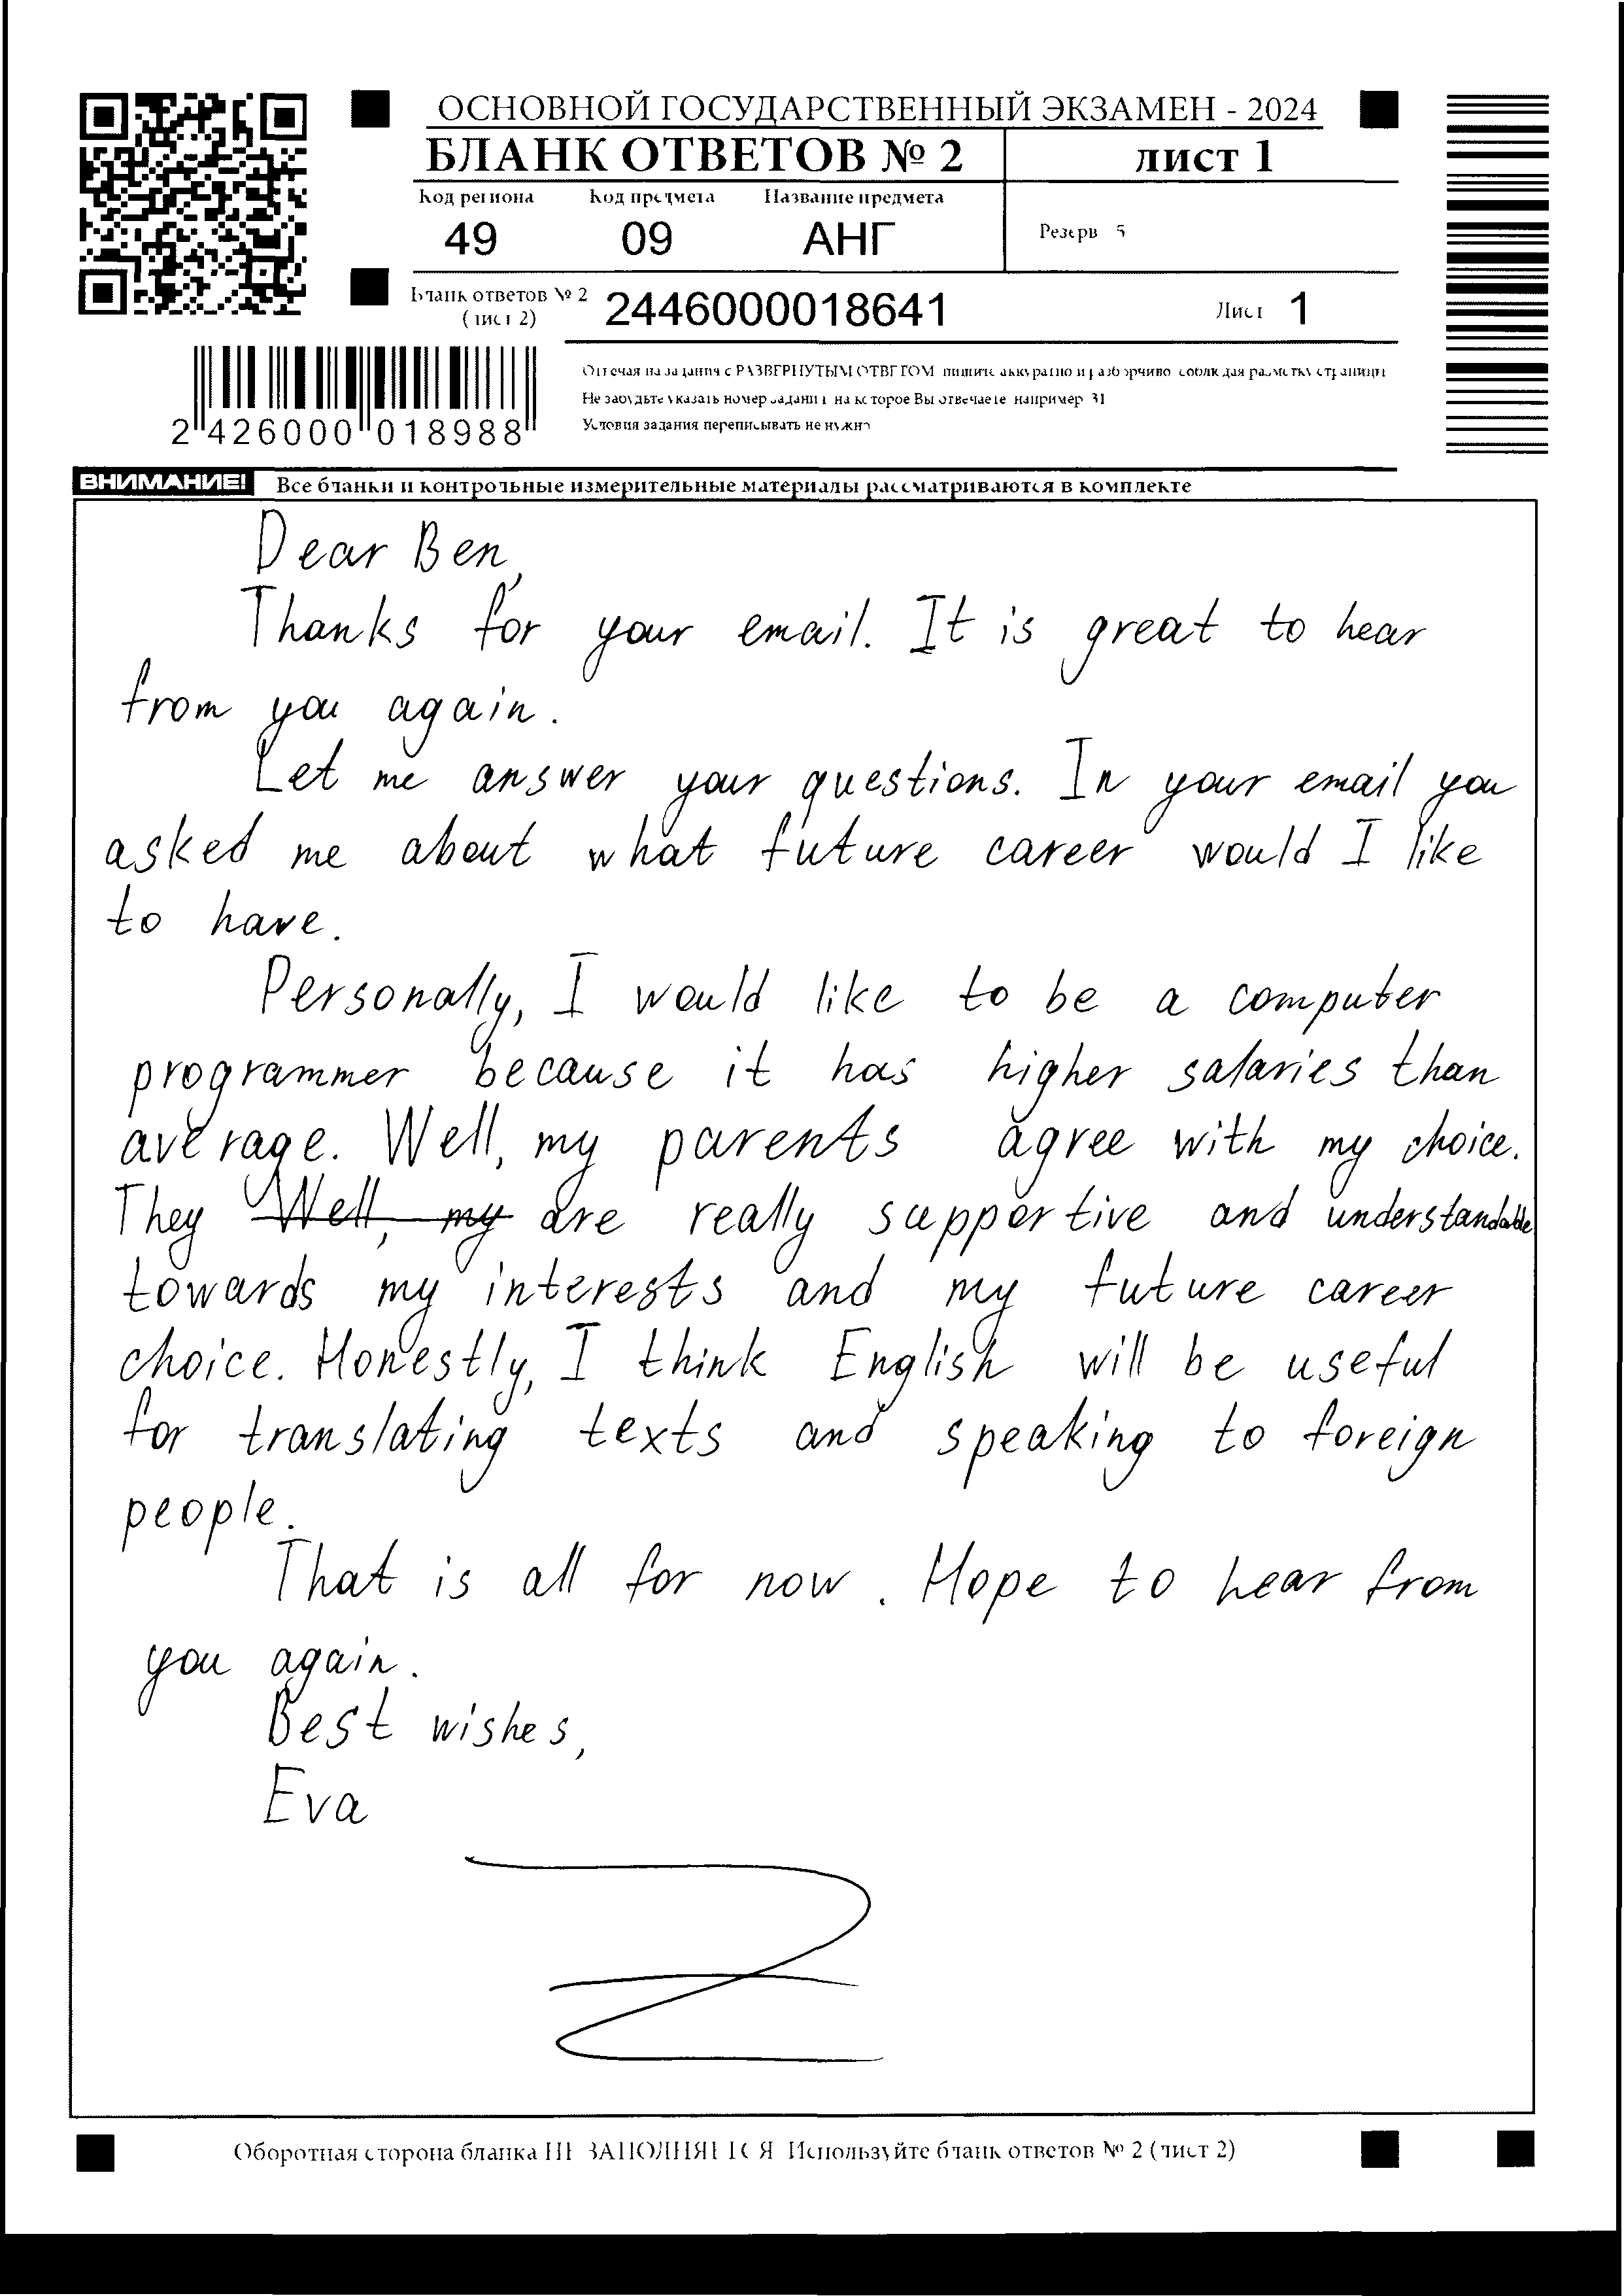 ОСНОВНОЙ ГОСУДАРСТВЕННЫЙ ЭКЗАМЕН - 2024
БЛАНК ОТВЕТОВ № 2 лист 1
Код региона Код предмета Название предмета
49 09 АНГ Резерв 5
Бланк ответов № 2 (лист 2) 2446000018641 Лист 1
Отвечая на задания с РАЗВЕРНУТЫМ ОТВЕТОМ пишите аккуратно и разборчиво соблюдая разметку страницы
Не забудьте указать номер задания на которое Вы отвечаете например 31
Условия задания переписывать не нужно
2 426000 018988
ВНИМАНИЕ! Все бланки и контрольные измерительные материалы рассматриваются в комплекте
Dear Ben,
Thanks for your email. It is great to hear
from you again.
Let me answer your questions. In your email you
asked me about what future career would I like
to have.
Personally, I would like to be a computer
programmer because it has higher salaries than
average. Well, my parents agree with my choice.
They Well, my are really supportive and understandable
towards my interests and my future career
choice. Honestly, I think English will be useful
for translating texts and speaking to foreign
people.
That is all for now. Hope to hear from
you again.
Best wishes,
Eva
Оборотная сторона бланка НЕ ЗАПОЛНЯЕТСЯ Используйте бланк ответов № 2 (лист 2)